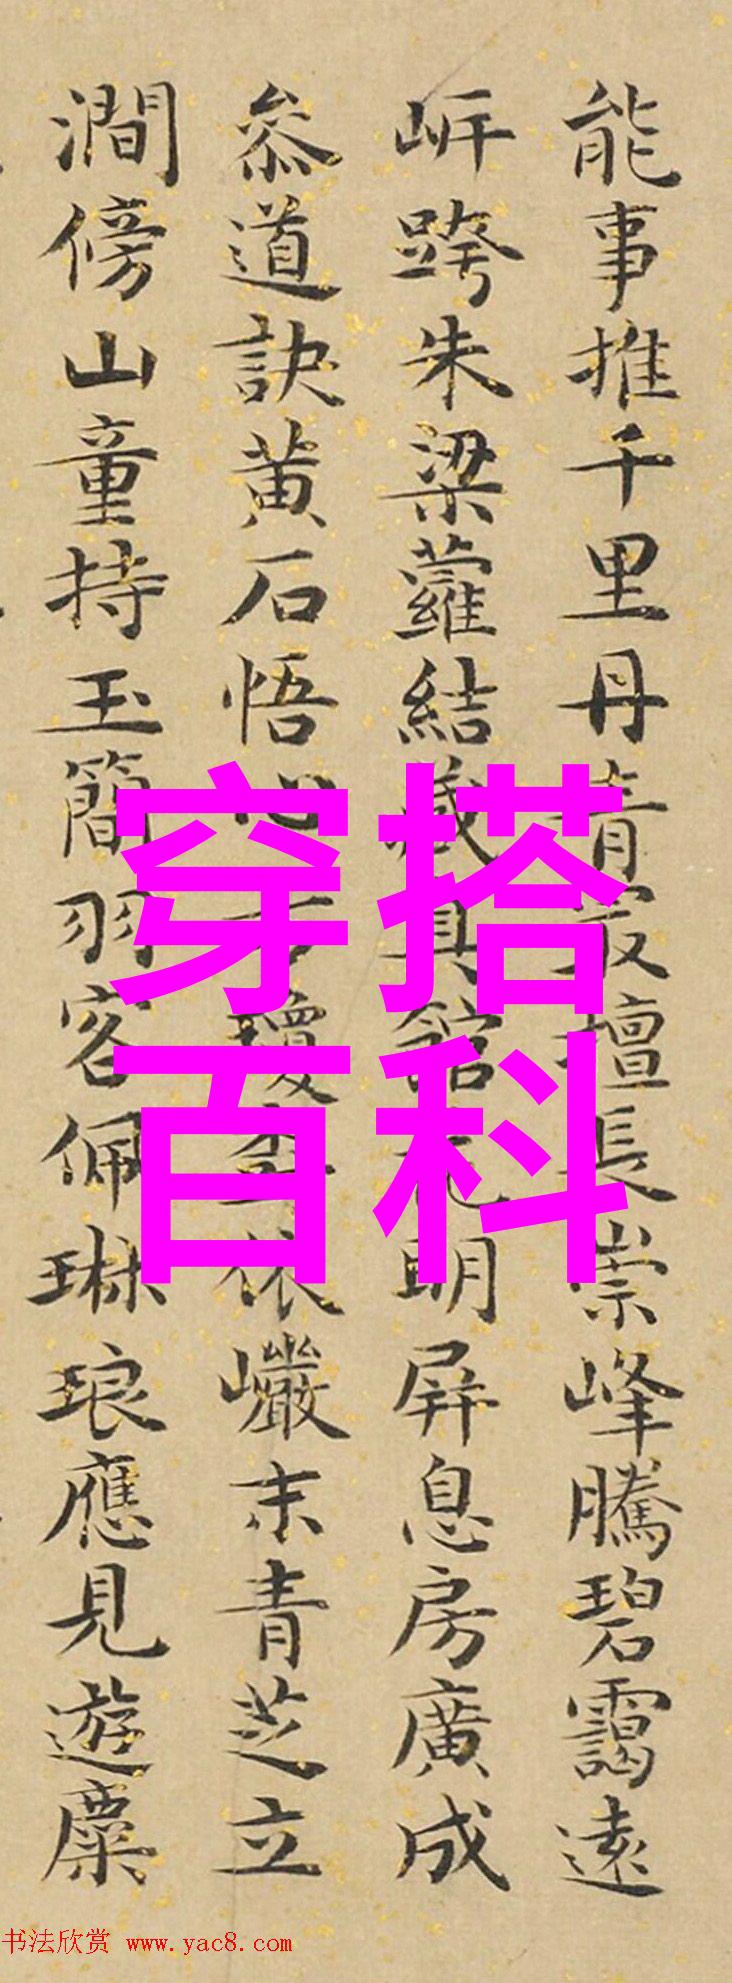 能事推千里丹青擅長崇峰騰碧靄遠
岍跨朱梁蘿結藏真館花明屏息房廣成
叅道訣黄石悟心方瓊依巖末青芝立
澗傍山童持玉簡羽客佩琳琅應見遊麋
穿搭
百科
书法欣赏 www.yac8.com